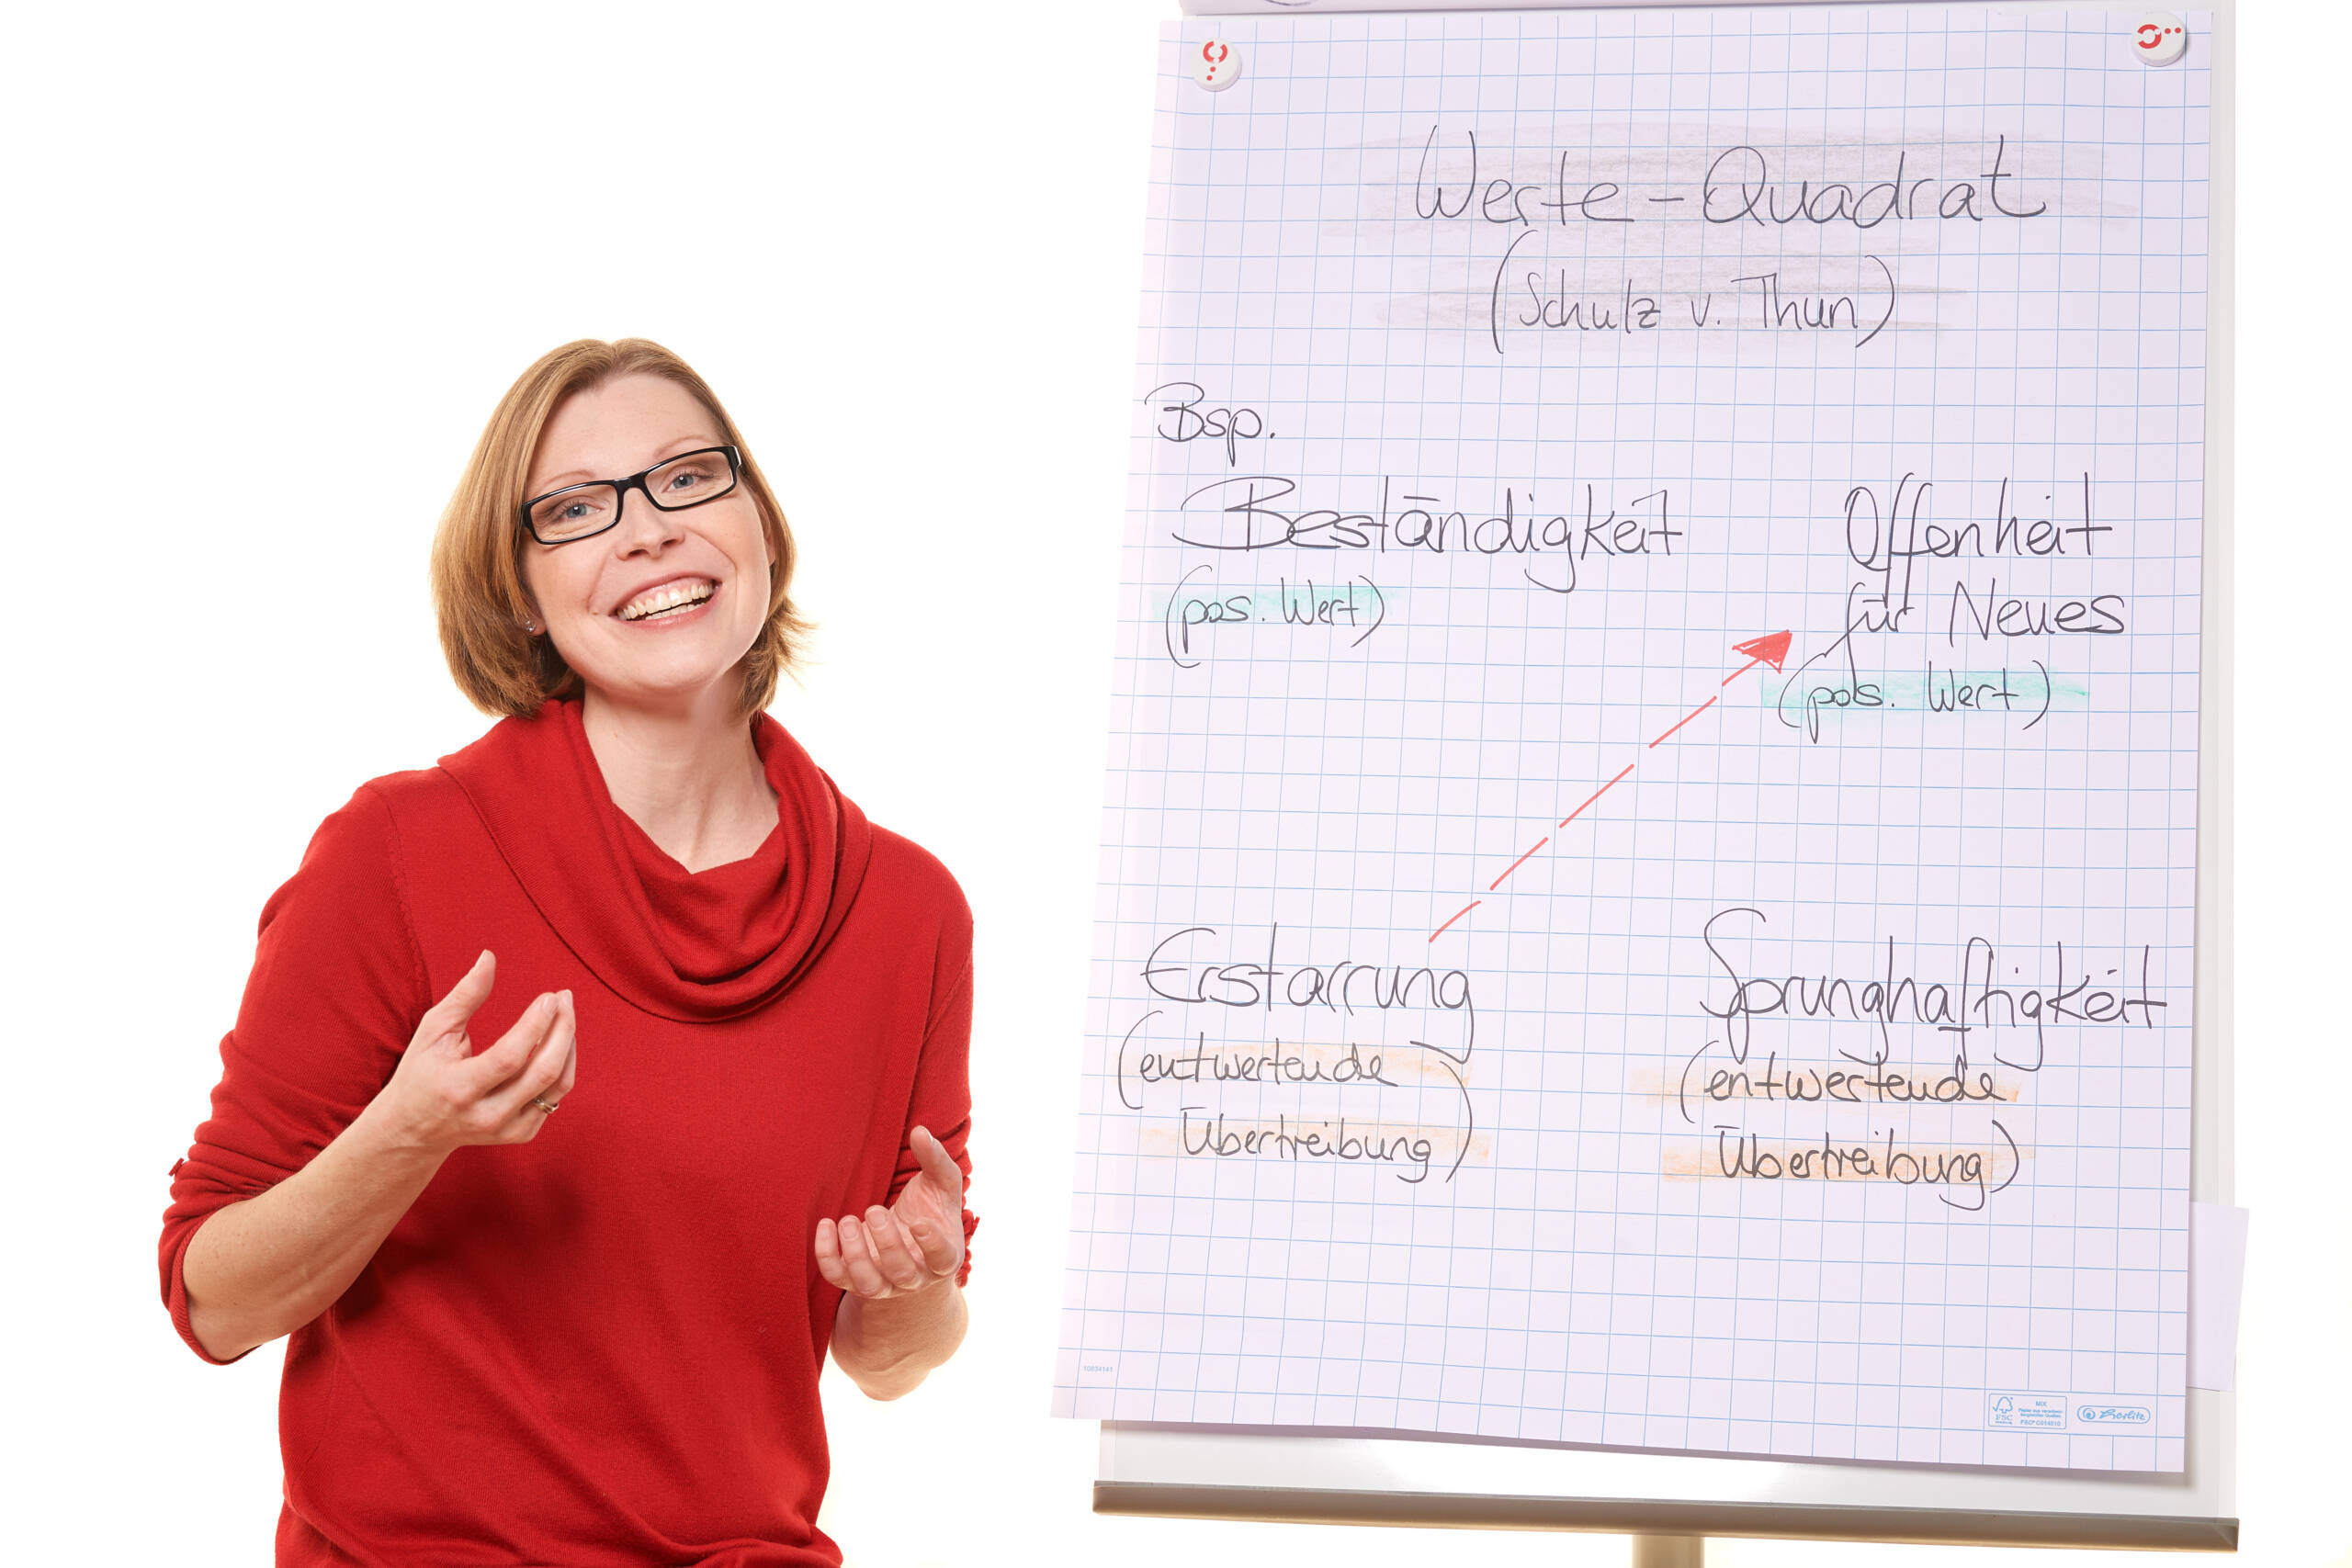 Werte-Quadrat
(Schulz v. Thun)
Bsp.
Beständigkeit
(pos. Wert)
Offenheit
für Neues
(pos. Wert)
Erstarrung
(entwertende
Übertreibung)
Sprunghaftigkeit
(entwertende
Übertreibung)
10834141
FSC
MIX
herlitz